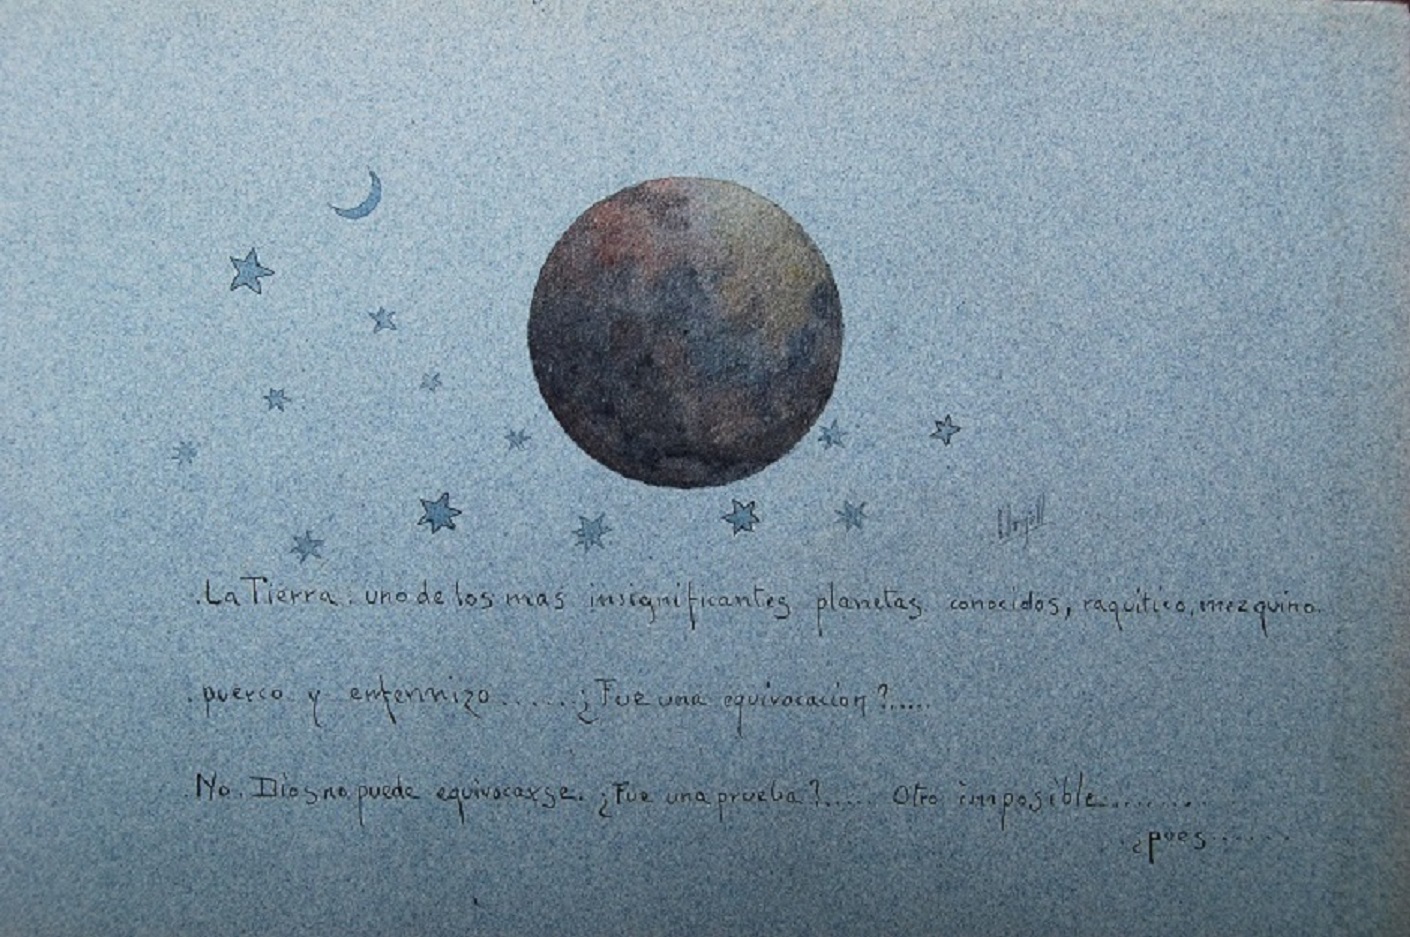 Urgell
.La Tierra. uno de los mas insignificantes planetas conocidos, raquítico, mezquino.
.puerco y enfermizo.....¿Fue una equivocacion?.....
.No. Dios no puede equivocarse. ¿Fue una prueba?..... Otro imposible..........
¿pues......